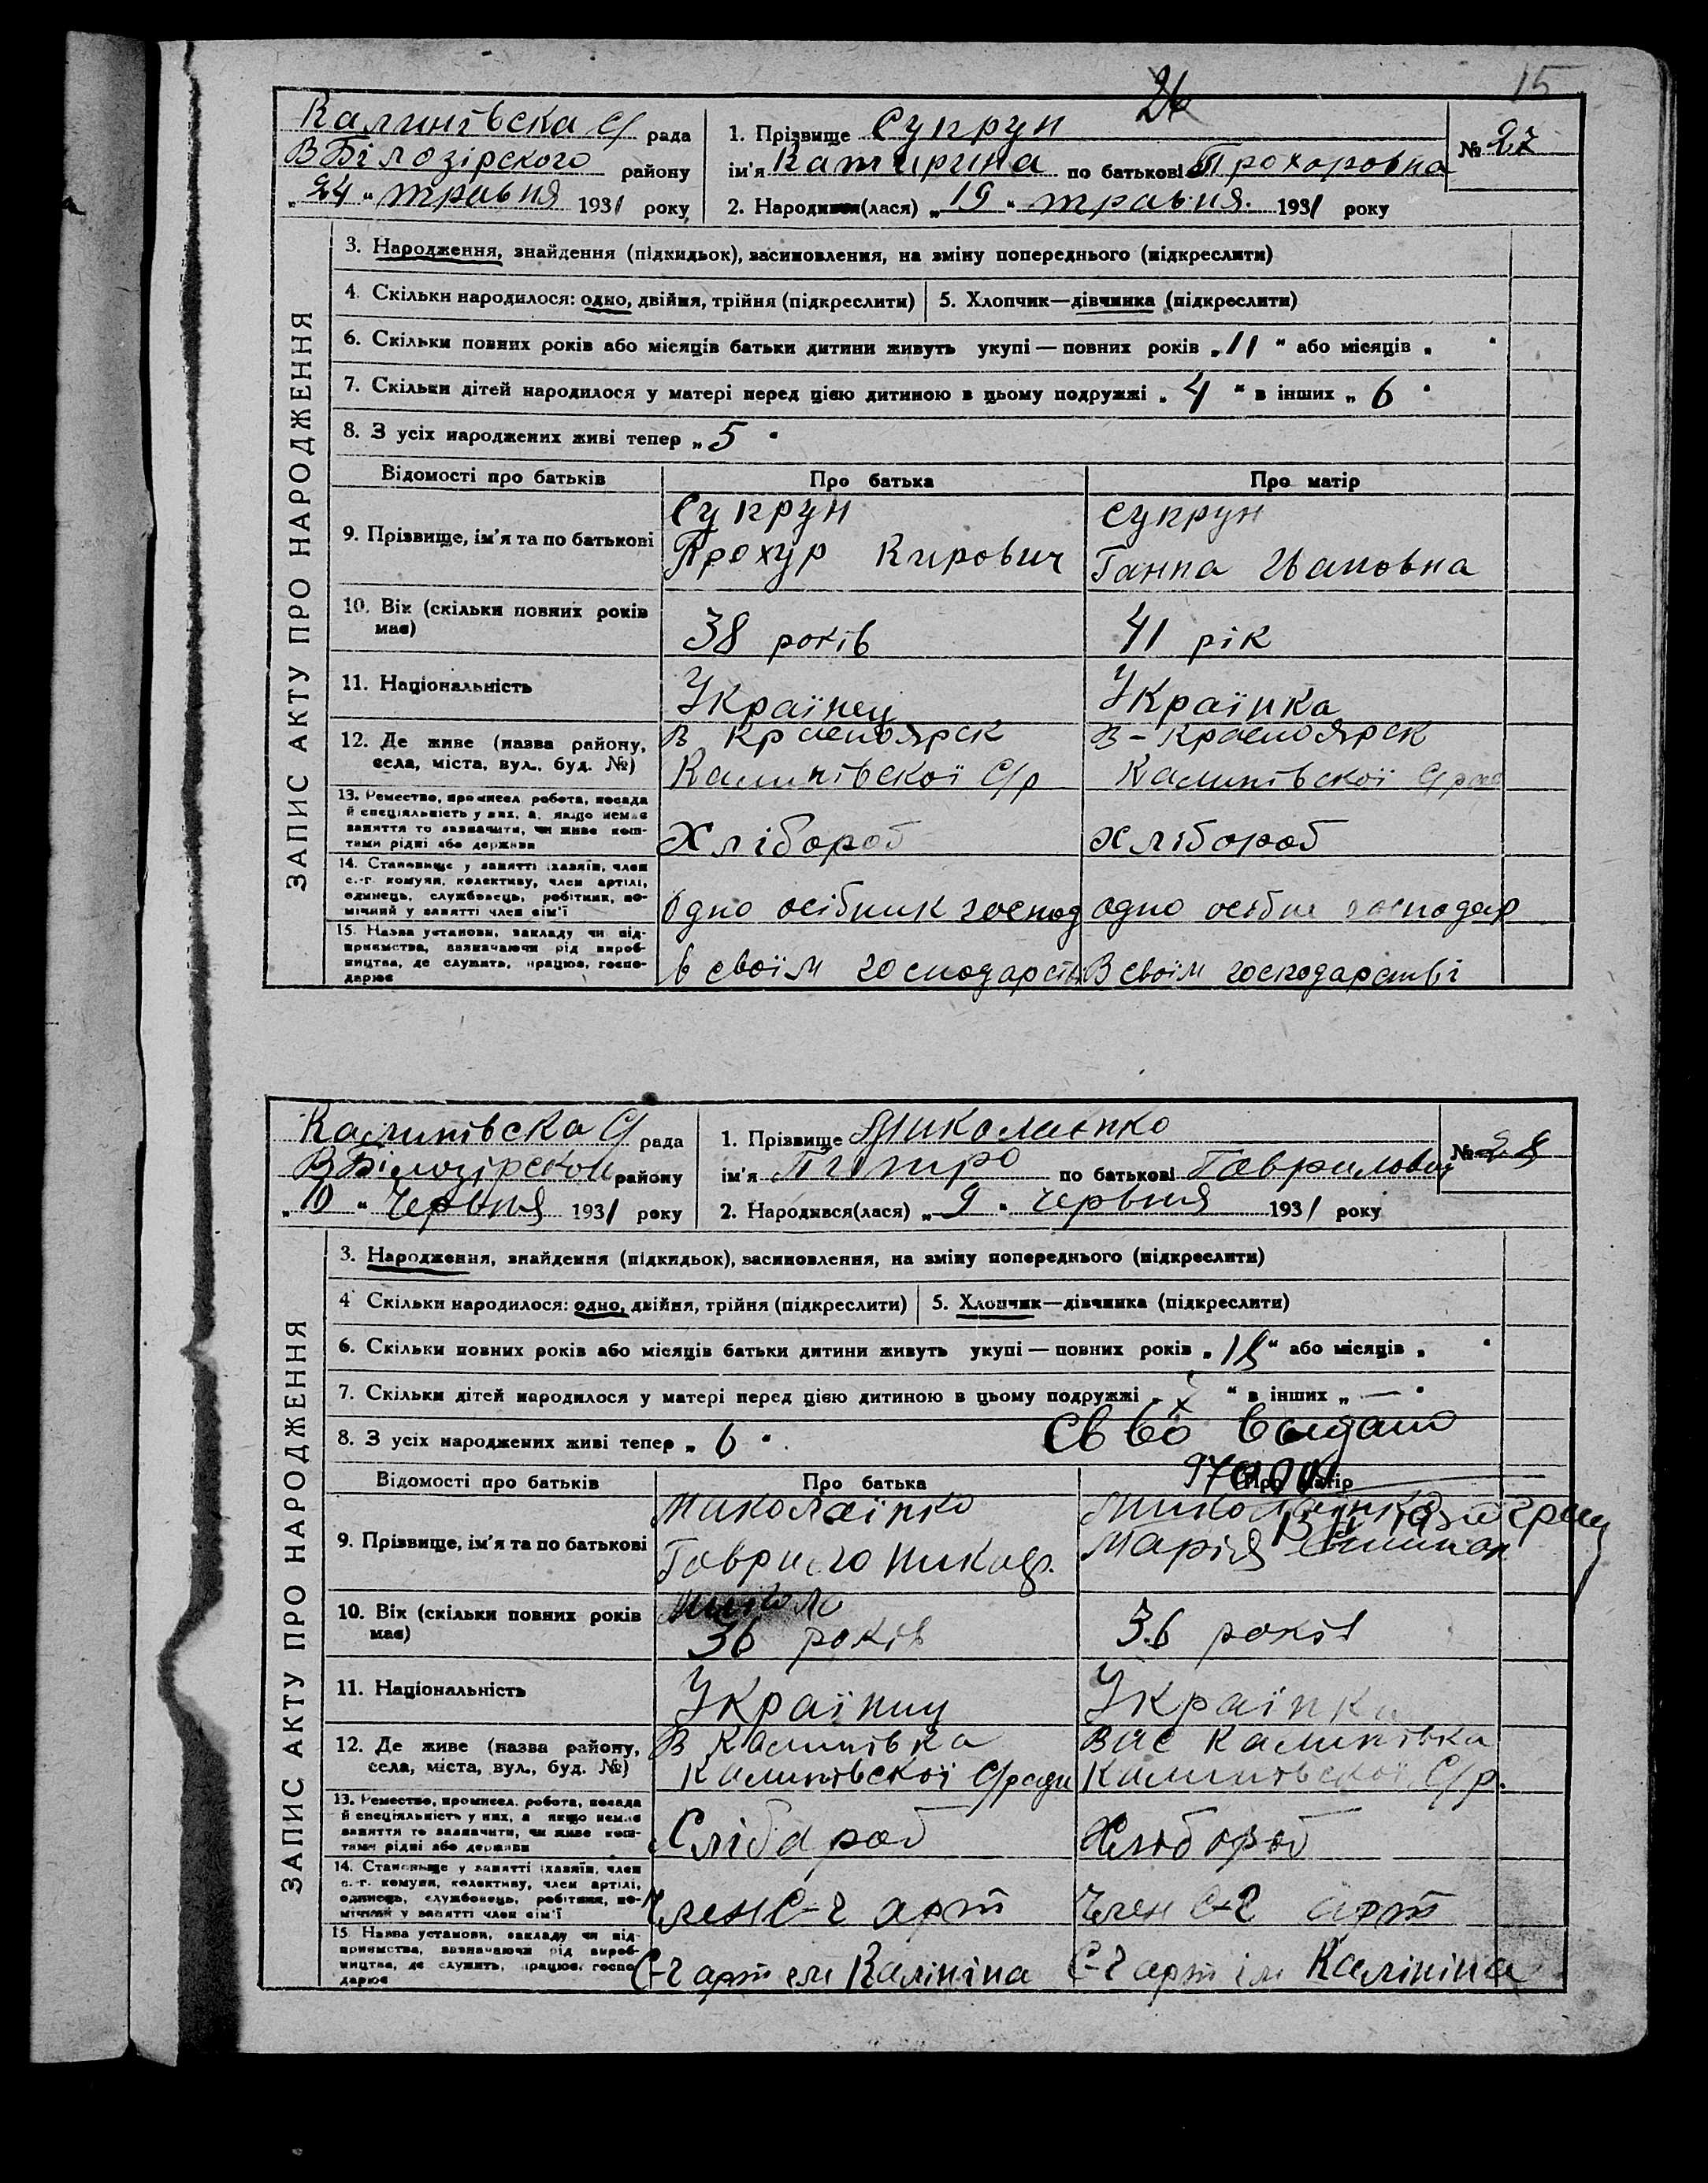 15
26
Калинівска С/ рада
В Білозірского району
„24“ травня 1931 року
1. Прізвище Супрун
ім'я Катирина по батькові Прохоровна
2. Народився(лася) „19“ травня 1931 року
№ 27
ЗАПИС АКТУ ПРО НАРОДЖЕННЯ
3. Народження, знайдення (підкидьок), засиновлення, на зміну попереднього (підкреслити)
4. Скільки народилося: одно, двійня, трійня (підкреслити)
5. Хлопчик—дівчинка (підкреслити)
6. Скільки повних років або місяців батьки дитини живуть укупі — повних років „11“ або місяців „ “
7. Скільки дітей народилося у матері перед цією дитиною в цьому подружжі „4“ в інших „6“
8. З усіх народжених живі тепер „5“
Відомості про батьків
Про батька
Про матір
9. Прізвище, ім'я та по батькові
Супрун
Прохур Кирович
Супрун
Ганна Ивановна
10. Вік (скільки повних років
має)
38 років
41 рік
11. Національність
Українец
Українка
12. Де живе (назва району,
села, міста, вул., буд. №)
В Красноярск
Калинівскої С/р
В - Красноярск
Калинівскої С/р
13. Ремество, промисел робота, посада
й спеціяльність у них, а, якщо немає
заняття то зазначити, чи живе кош-
тами рідні або держави
Хлібороб
Хлібороб
14. Становище у занятті (хазяїн, член
с.-г. комуни, колективу, член артілі,
одинець, службовець, робітник, по-
мічний у занятті член сім'ї
Одно осібник господ
одно осібн господар
15. Назва установи, закладу чи під-
приємства, зазначаючи рід вироб-
ництва, де служить, працює, госпо-
дарює
в своїм господарств
В своїм господарстві
Калинівска С/ рада
В Білозірскои району
„10“ Червня 1931 року
1. Прізвище Миколаєнко
ім'я Пітро по батькові Гаврилович
2. Народився(лася) „9“ червня 1931 року
№ 28
ЗАПИС АКТУ ПРО НАРОДЖЕННЯ
3. Народження, знайдення (підкидьок), засиновлення, на зміну попереднього (підкреслити)
4 Скільки народилося: одно, двійня, трійня (підкреслити)
5. Хлопчик—дівчинка (підкреслити)
6. Скільки повних років або місяців батьки дитини живуть укупі — повних років „ “ або місяців „ “
7. Скільки дітей народилося у матері перед цією дитиною в цьому подружжі „ “ в інших „—“
8. З усіх народжених живі тепер „6“
Св во выдано
Відомості про батьків
Про батька
Про матір
9. Прізвище, ім'я та по батькові
Миколаїнко
Гаврило
Миколаїнко
Марія
10. Вік (скільки повних років
має)
36 років
36 років
11. Національність
Українц
Українка
12. Де живе (назва району,
села, міста, вул., буд. №)
В Калинівка
Калинівскої С/ради
Калинівка
Калинівскої С/р.
13. Ремество, промисел. робота, посада
й спеціяльність у них, а якщо немає
заняття то зазначити, чи живе кош-
тами рідні або держави
Слібароб
Хлібороб
14. Становище у занятті (хазяїн, член
с.-г. комуни, колективу, член артілі,
одинець, службовець, робітник, по-
мічний у занятті член сім'ї
Член С-г арт
Член С-г арт
15. Назва установи, закладу чи під-
приємства, зазначаючи рід вироб-
ництва, де служить, працює, госпо-
дарює
С-г арт ім Калініна
С-г арт ім Калініна